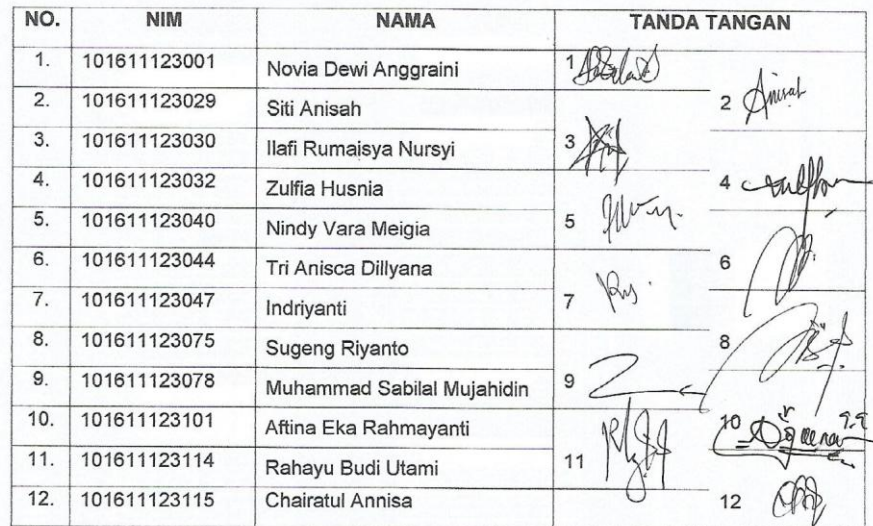 NO. NIM NAMA TANDA TANGAN
1. 101611123001 Novia Dewi Anggraini 1
2. 101611123029 Siti Anisah 2 Anisah
3. 101611123030 Ilafi Rumaisya Nursyi 3
4. 101611123032 Zulfia Husnia 4
5. 101611123040 Nindy Vara Meigia 5
6. 101611123044 Tri Anisca Dillyana 6
7. 101611123047 Indriyanti 7
8. 101611123075 Sugeng Riyanto 8
9. 101611123078 Muhammad Sabilal Mujahidin 9
10. 101611123101 Aftina Eka Rahmayanti 10
11. 101611123114 Rahayu Budi Utami 11
12. 101611123115 Chairatul Annisa 12